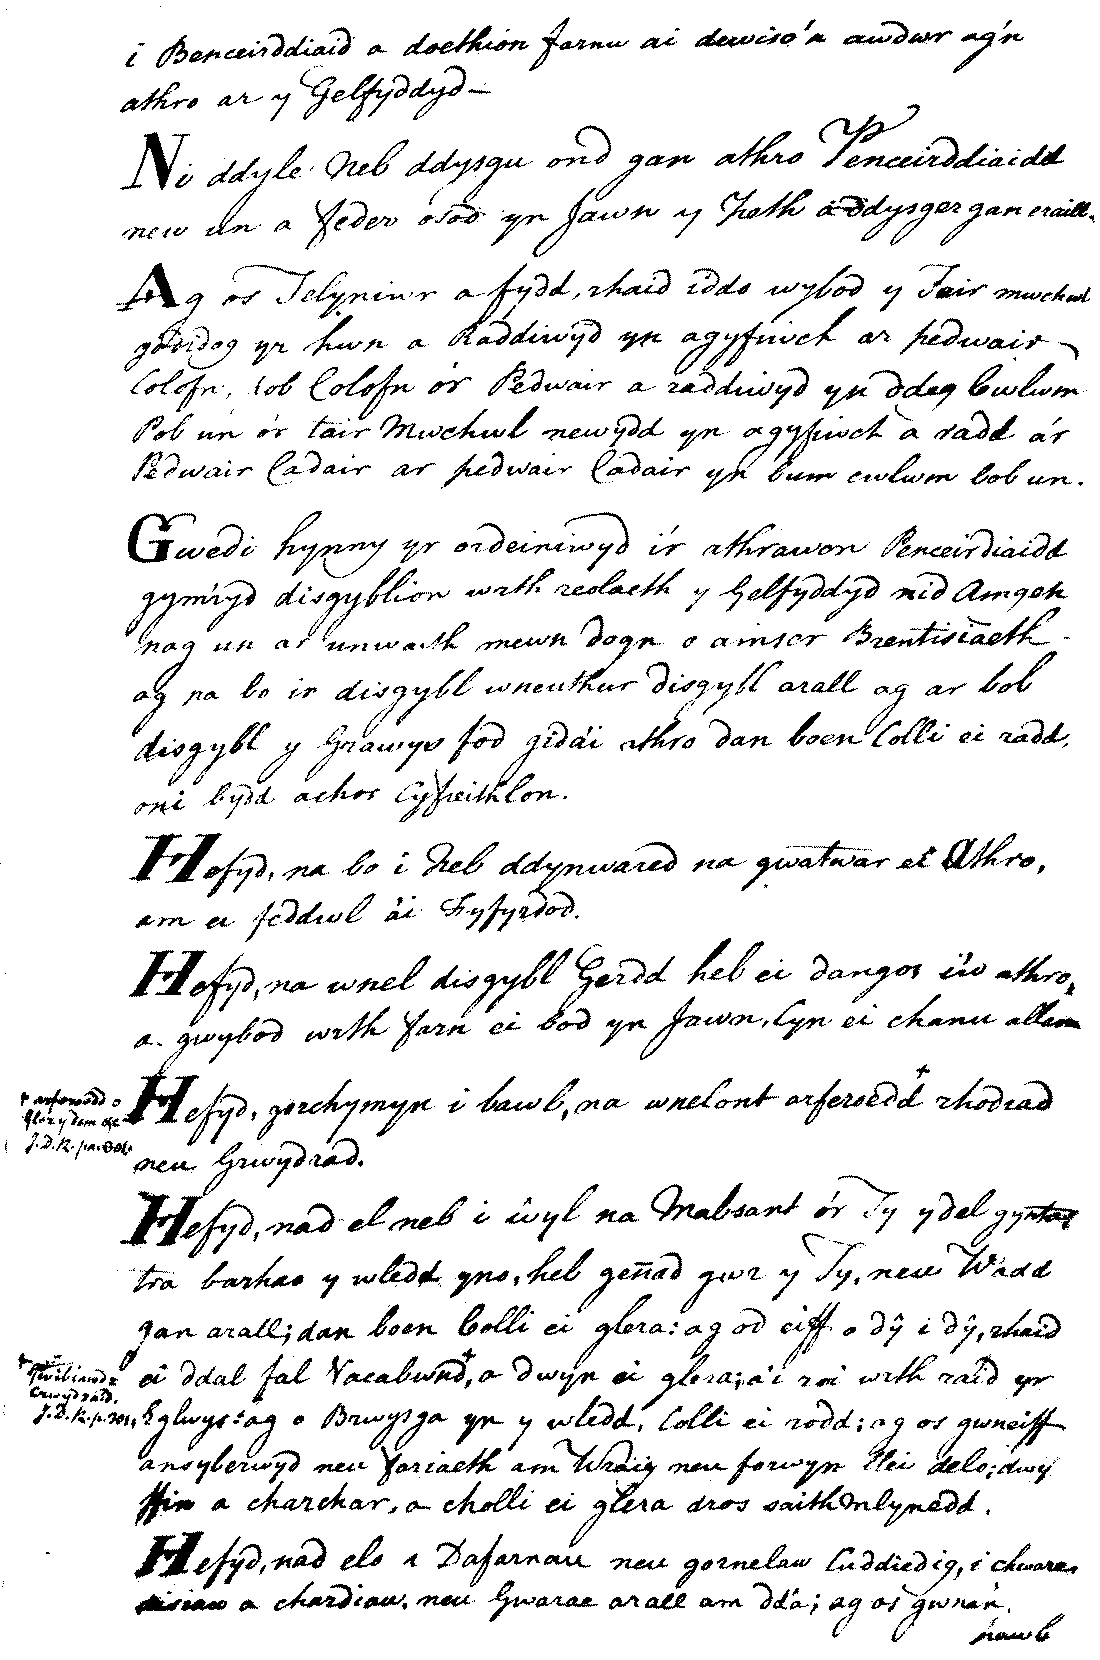 i Benceirddiaid a doethion farnu ai dewiso'n awdwr ag'n
athro ar y Gelfyddyd—
Ni ddyle Neb ddysgu ond gan athro Penceirddiaidd
new un a feder osod yn Jawn y Peth a ddysger gan eraill.
Ag os Telyniwr a fydd, rhaid iddo wybod y Tair mwchwl
yr hwn a Raddiwyd yn agyfiwch ar pedwair
Colofn, Cob Colofn o'r Pedwair a raddiwyd yn ddeg Cwlwm
Pob un o'r tair Mwchwl newydd yn agyfiwch a radd a'r
Pedwair Cadair ar pedwair Cadair yn bum cwlwm bob un.
Gwedi hynny yr ordeiniwyd i'r athrawon Penceirdiaidd
gymryd disgyblion wrth reolaeth y Gelfyddyd nid Amgen
nag un ar unwaith mewn dogn o amser Brentisiaeth
ag na bo ir disgybl wneuthur disgybl arall ag ar bob
disgybl y Grawys fod gida'i athro dan boen Colli ei radd,
oni bydd achos Cyfreithlon.
Hefyd, na bo i Neb ddynwared na gwatwar ei Athro,
am ei feddwl a'i Fyfyrdod.
Hefyd, na wnel disgybl Gerdd heb ei dangos i'w athro,
a gwybod wrth farn ei bod yn Jawn, Cyn ei chanu allann
Hefyd, gorchymyn i bawb, na wnelont arferoedd + rhodiad
neu Grwydrad.
+ arferoedd o
Glerydom &c
J.D.R. pa. 301.
Hefyd, nad el neb i wyl na Mabsant o'r Ty ydel gyntaf
tra barhao y wledd yno, heb gennad gwr y Ty, neu Wadd
gan arall; dan boen Colli ei glera: ag od eiff o dŷ i dŷ, rhaid
ei ddal fal Vacabwnd +, a dwyn ei glera; a'i roi wrth raid yr
Eglwys: ag o Brwysga yn y wledd, Colli ei rodd; ag os gwneiff
ansyberwyd neu foriaeth am Wraig neu forwyn lle i delo; dwy
ffin a charchar, a cholli ei glera dros saith Mlynedd.
+ Gwibiawdr
Crwydraid.
J.D.R. p. 301.
Hefyd, nad elo i Dafarnau neu gornelaw Cuddiedig, i chwarae
disiau a chardiau, neu Gwarae arall am dda; ag os gwnan,
rawb